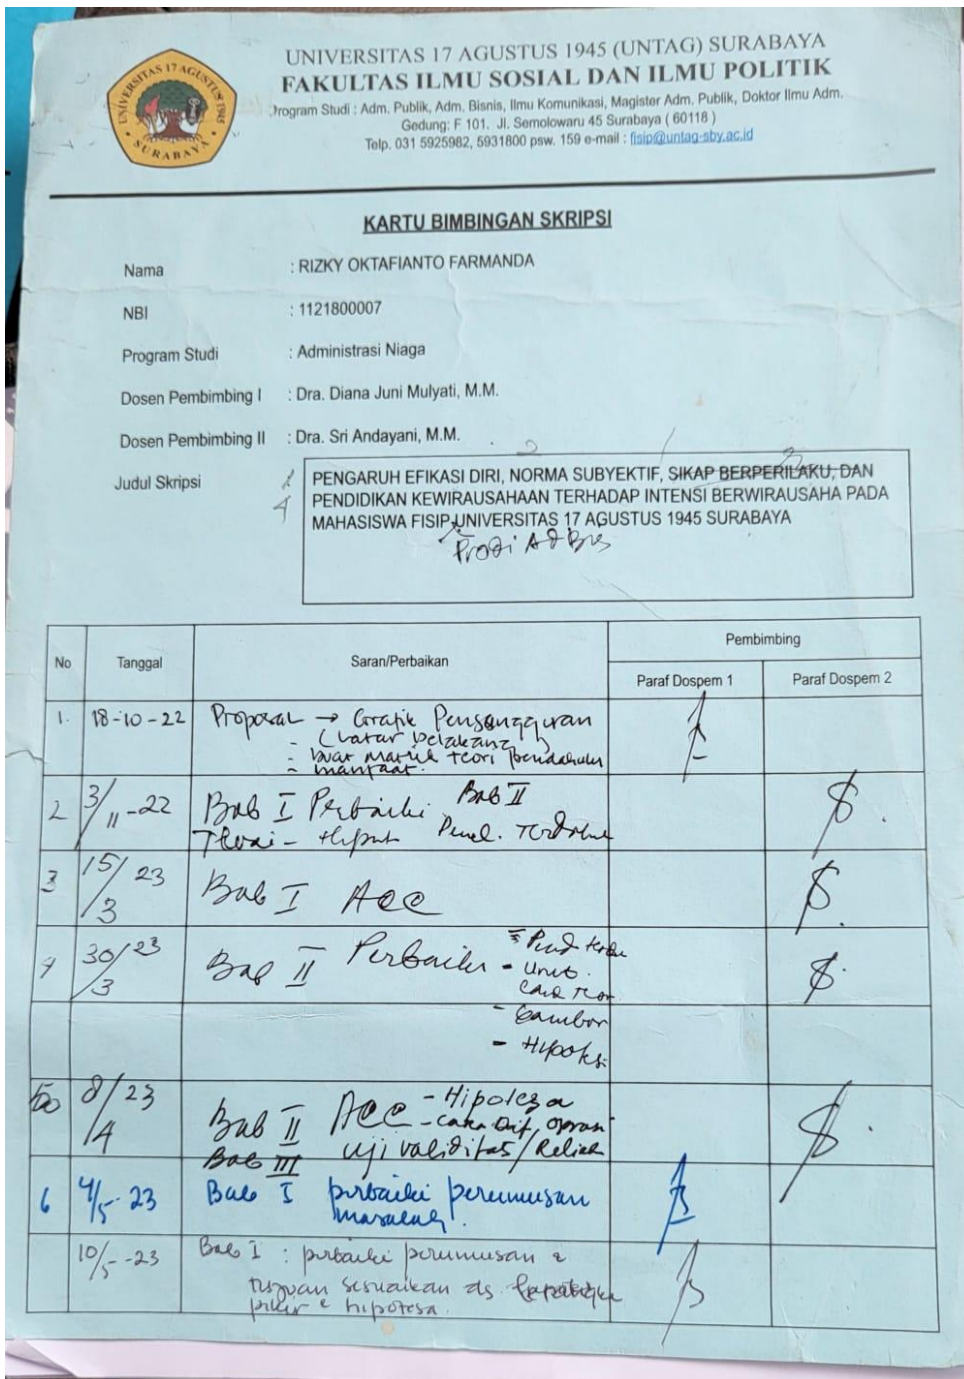 UNIVERSITAS 17 AGUSTUS 1945
SURABAYA
UNIVERSITAS 17 AGUSTUS 1945 (UNTAG) SURABAYA
FAKULTAS ILMU SOSIAL DAN ILMU POLITIK
Program Studi : Adm. Publik, Adm. Bisnis, Ilmu Komunikasi, Magister Adm. Publik, Doktor Ilmu Adm.
Gedung: F 101. Jl. Semolowaru 45 Surabaya ( 60118 )
Telp. 031 5925982, 5931800 psw. 159 e-mail : fisip@untag-sby.ac.id
KARTU BIMBINGAN SKRIPSI
Nama : RIZKY OKTAFIANTO FARMANDA
NBI : 1121800007
Program Studi : Administrasi Niaga
Dosen Pembimbing I : Dra. Diana Juni Mulyati, M.M.
Dosen Pembimbing II : Dra. Sri Andayani, M.M.
Judul Skripsi
PENGARUH EFIKASI DIRI, NORMA SUBYEKTIF, SIKAP BERPERILAKU, DAN
PENDIDIKAN KEWIRAUSAHAAN TERHADAP INTENSI BERWIRAUSAHA PADA
MAHASISWA FISIP UNIVERSITAS 17 AGUSTUS 1945 SURABAYA
Prodi Ad Bis
No Tanggal Saran/Perbaikan Pembimbing
Paraf Dospem 1 Paraf Dospem 2
1. 18-10-22 Proposal → Grafik Pengangguran
(latar belakang)
- buat matrik teori
- manfaat.
2 3/11-22 Bab I Perbaiki Bab II
Teori - Penel. Terdahulu
3 15/3 23 Bab I ACC
4 30/3 23 Bab II Perbaiki
-
- Gambar
- Hipotesi
5 8/4 23 Bab II ACC - Hipotesa
- Cara
Bab III Uji validitas/
6 4/5-23 Bab I perbaiki perumusan
masalah.
10/5-23 Bab I : perbaiki perumusan &
tujuan sesuaikan dg
pikir & hipotesa.